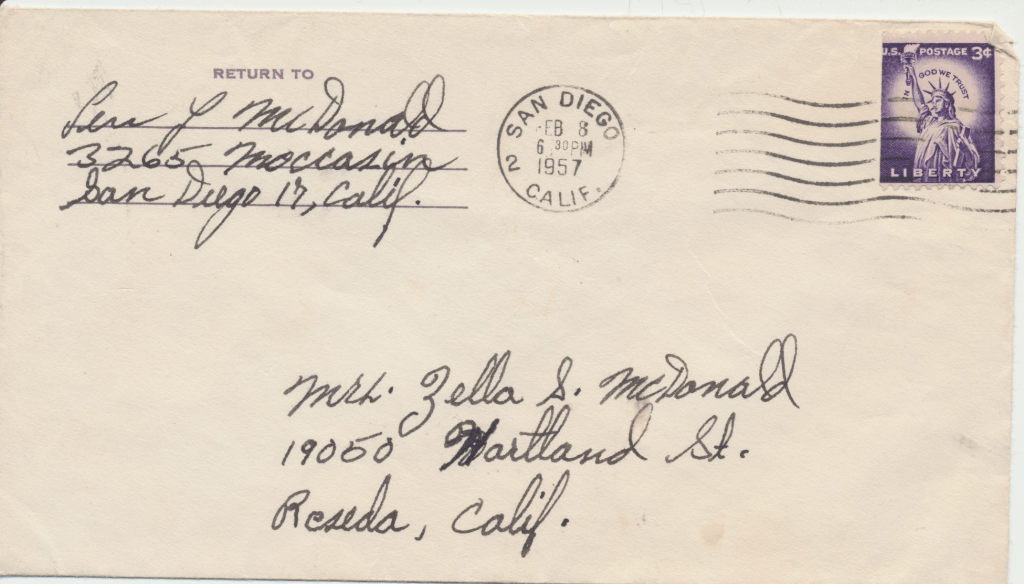 RETURN TO
Len L McDonald
3265 Moccasin
San Diego 17, Calif.
SAN DIEGO
FEB 8
6 30 PM
1957
2
CALIF.
U.S. POSTAGE 3¢
IN GOD WE TRUST
LIBERTY
Mrs. Zella S. McDonald
19050 Hartland St.
Reseda, Calif.